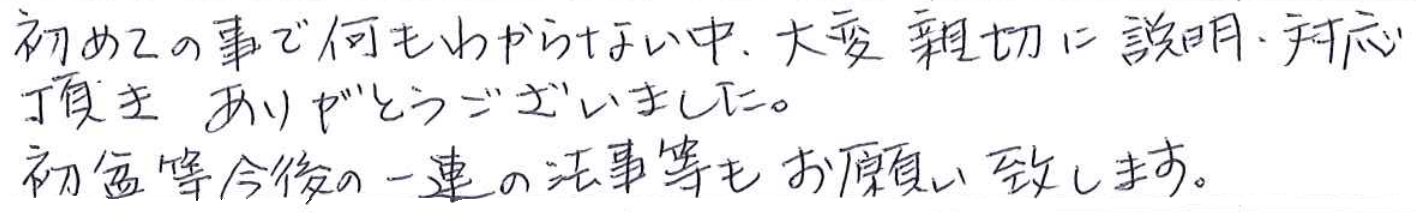 初めての事で何もわからない中、大変 親切に 説明・対応
頂き ありがとうございました。
初盆等今後の一連の法事等も お願い 致します。